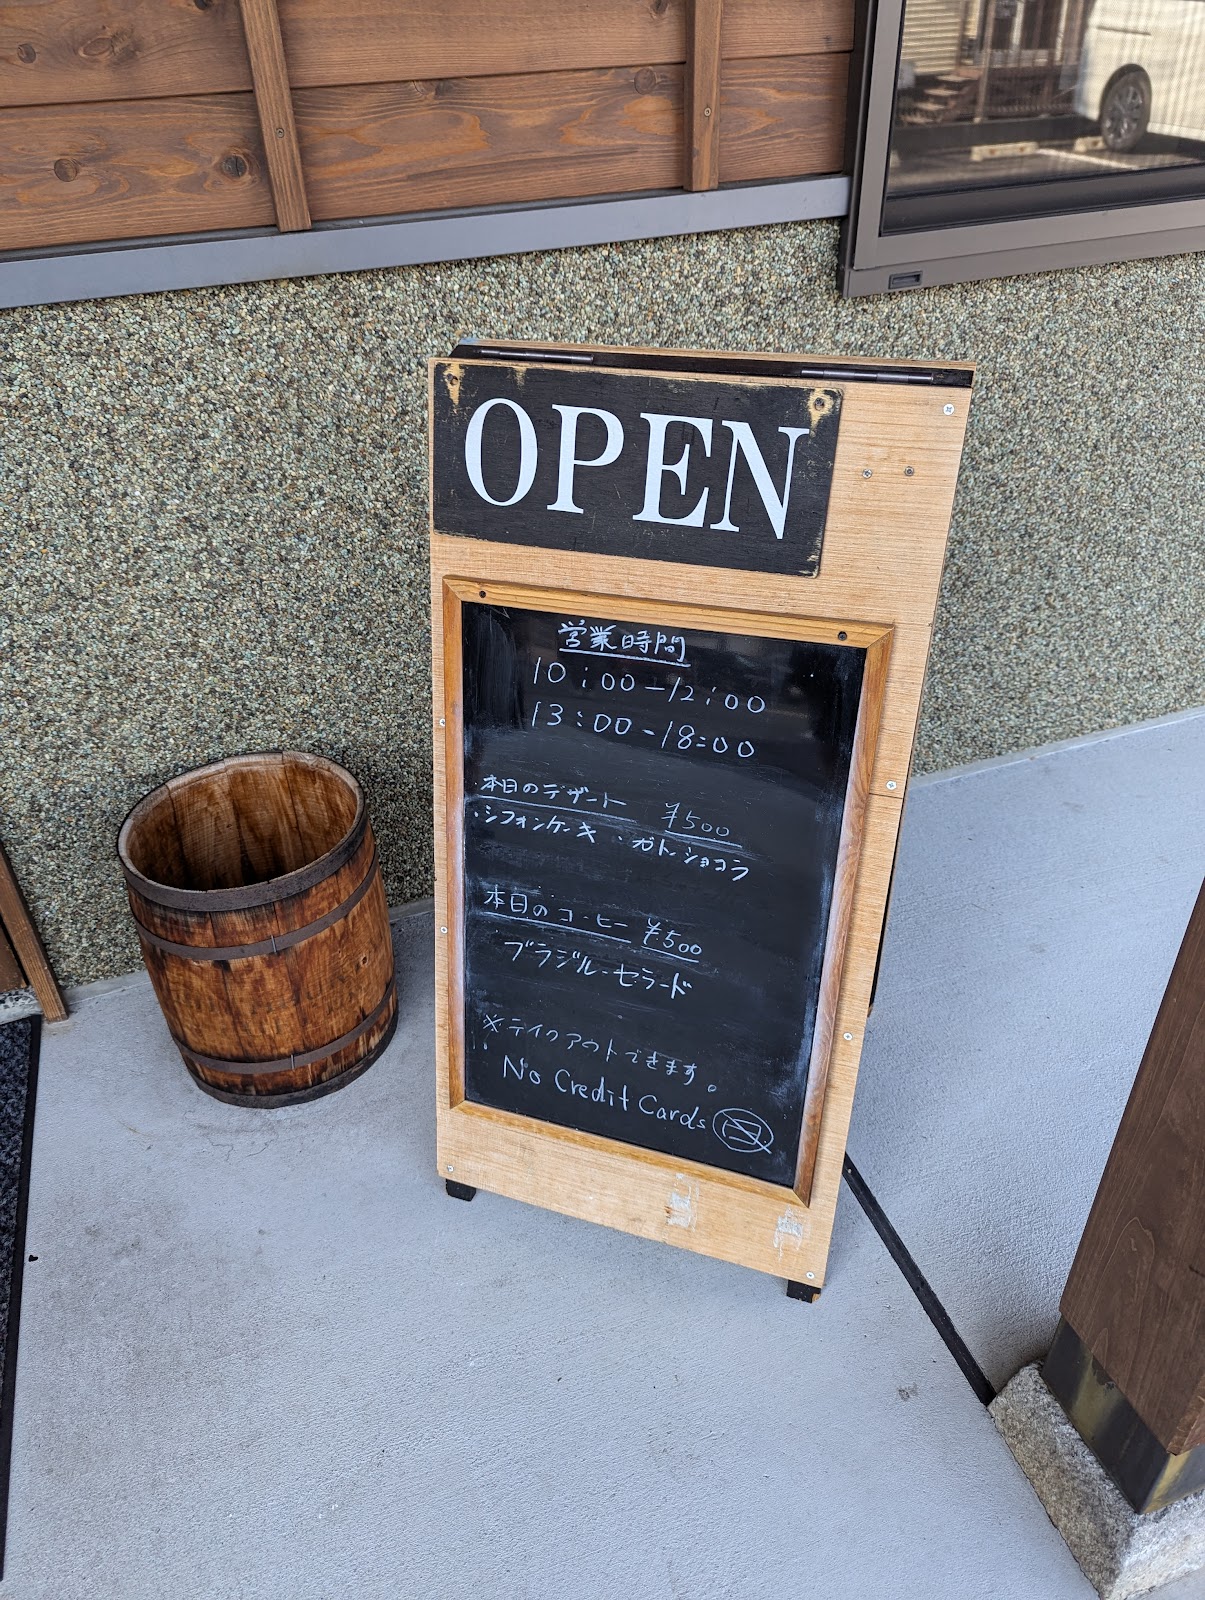 OPEN
営業時間
10:00-12:00
13:00-18:00
本日のデザート ¥500
・シフォンケーキ ・ガトーショコラ
本日のコーヒー ¥500
ブラジル・セラード
※テイクアウトできます。
No Credit Cards